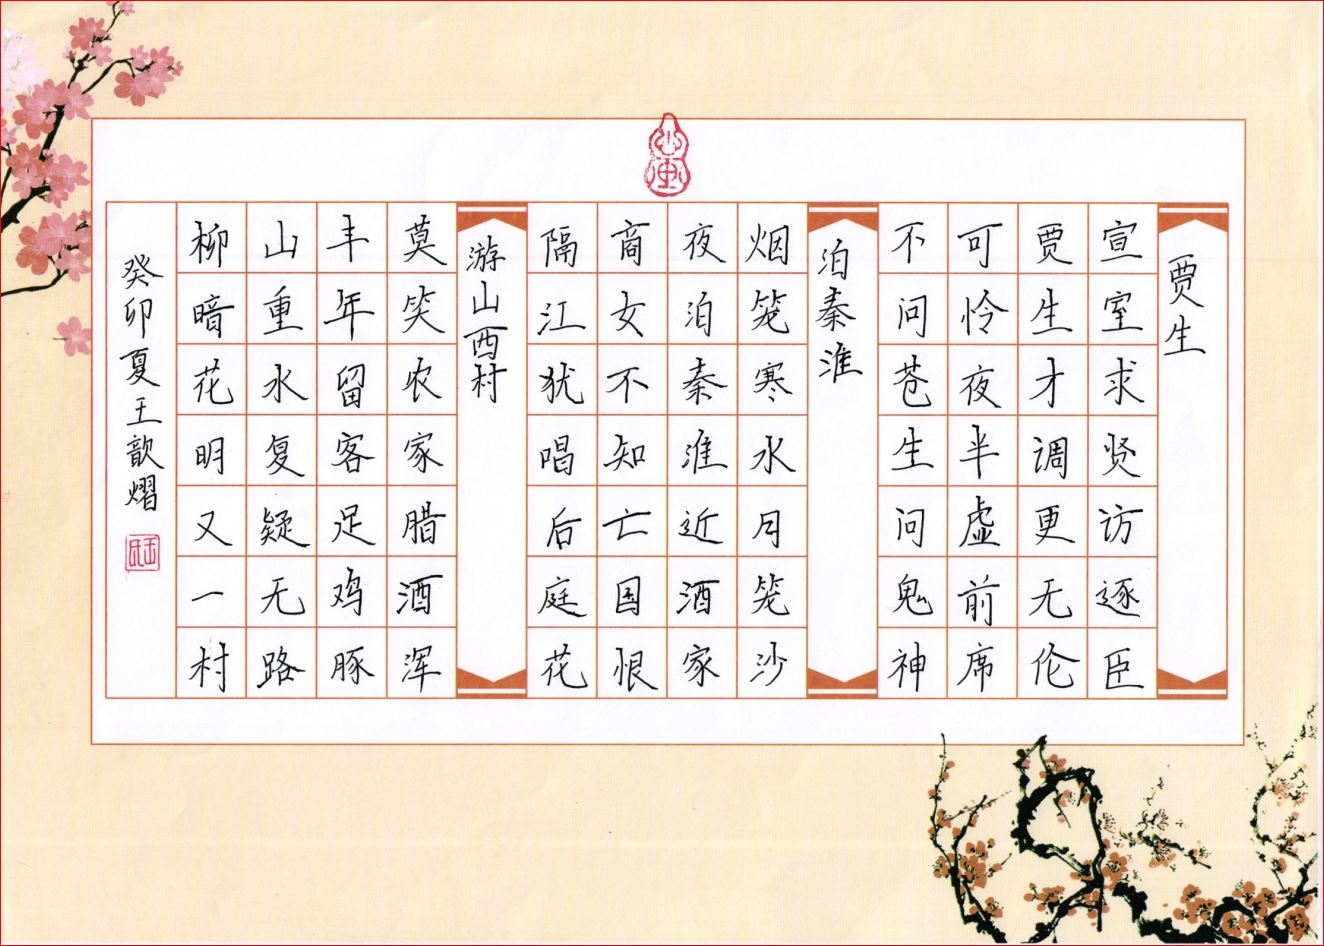 贾生
宣室求贤访逐臣
贾生才调更无伦
可怜夜半虚前席
不问苍生问鬼神
泊秦淮
烟笼寒水月笼沙
夜泊秦淮近酒家
商女不知亡国恨
隔江犹唱后庭花
游山西村
莫笑农家腊酒浑
丰年留客足鸡豚
山重水复疑无路
柳暗花明又一村
癸卯夏王歆熠